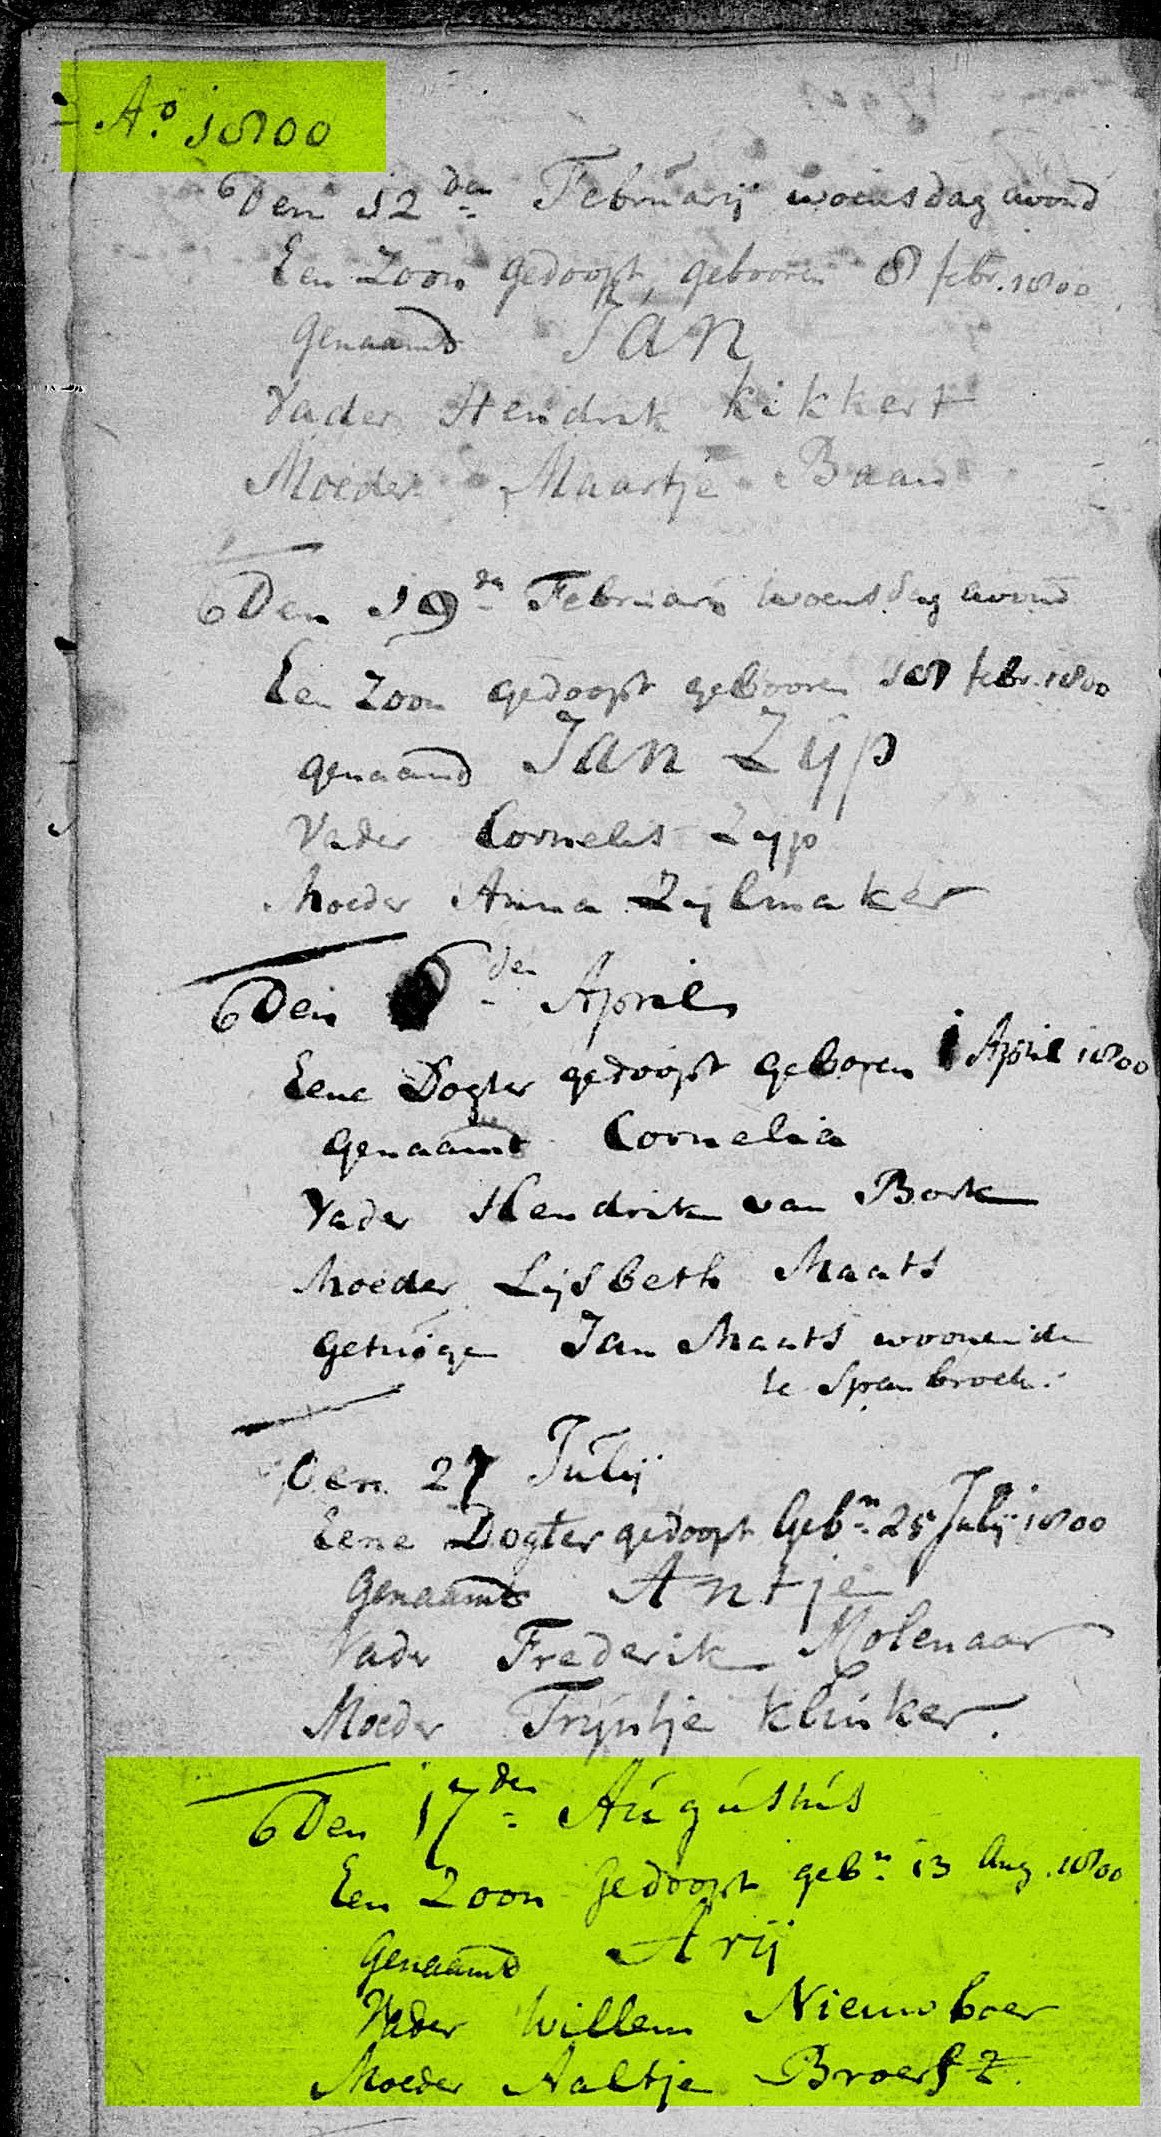 Ao 1800
Den 12den Februarij woensdag avond
Een Zoon gedoopt, gebooren 8 febr. 1800
genaamd Jan
Vader Hendrik Kikkert
Moeder Maartje Baan
Den 19den Februarij woensdag avond
Een Zoon gedoopt gebooren 18 febr. 1800
genaamd Jan Zijp
Vader Cornelis Zijp
Moeder Anna Zijlmaker
Den 6den April
Eene Dogter gedoopt geboren 1 April 1800
genaamd Cornelia
Vader Hendrik van Bork
Moeder Lijsbeth Maats
getuige Jan Maats woonende
te Spanbroek.
Den 27 Julij
Eene Dogter gedoopt Gebn 25 Julij 1800
Genaamd Antje
Vader Frederik Molenaar
Moeder Trijntje Klinker.
Den 17den Augustus
Een Zoon gedoopt gebn 13 Aug. 1800
Genaamd Arij
Vader Willem Nieuwboer
Moeder Aaltje Broersz.